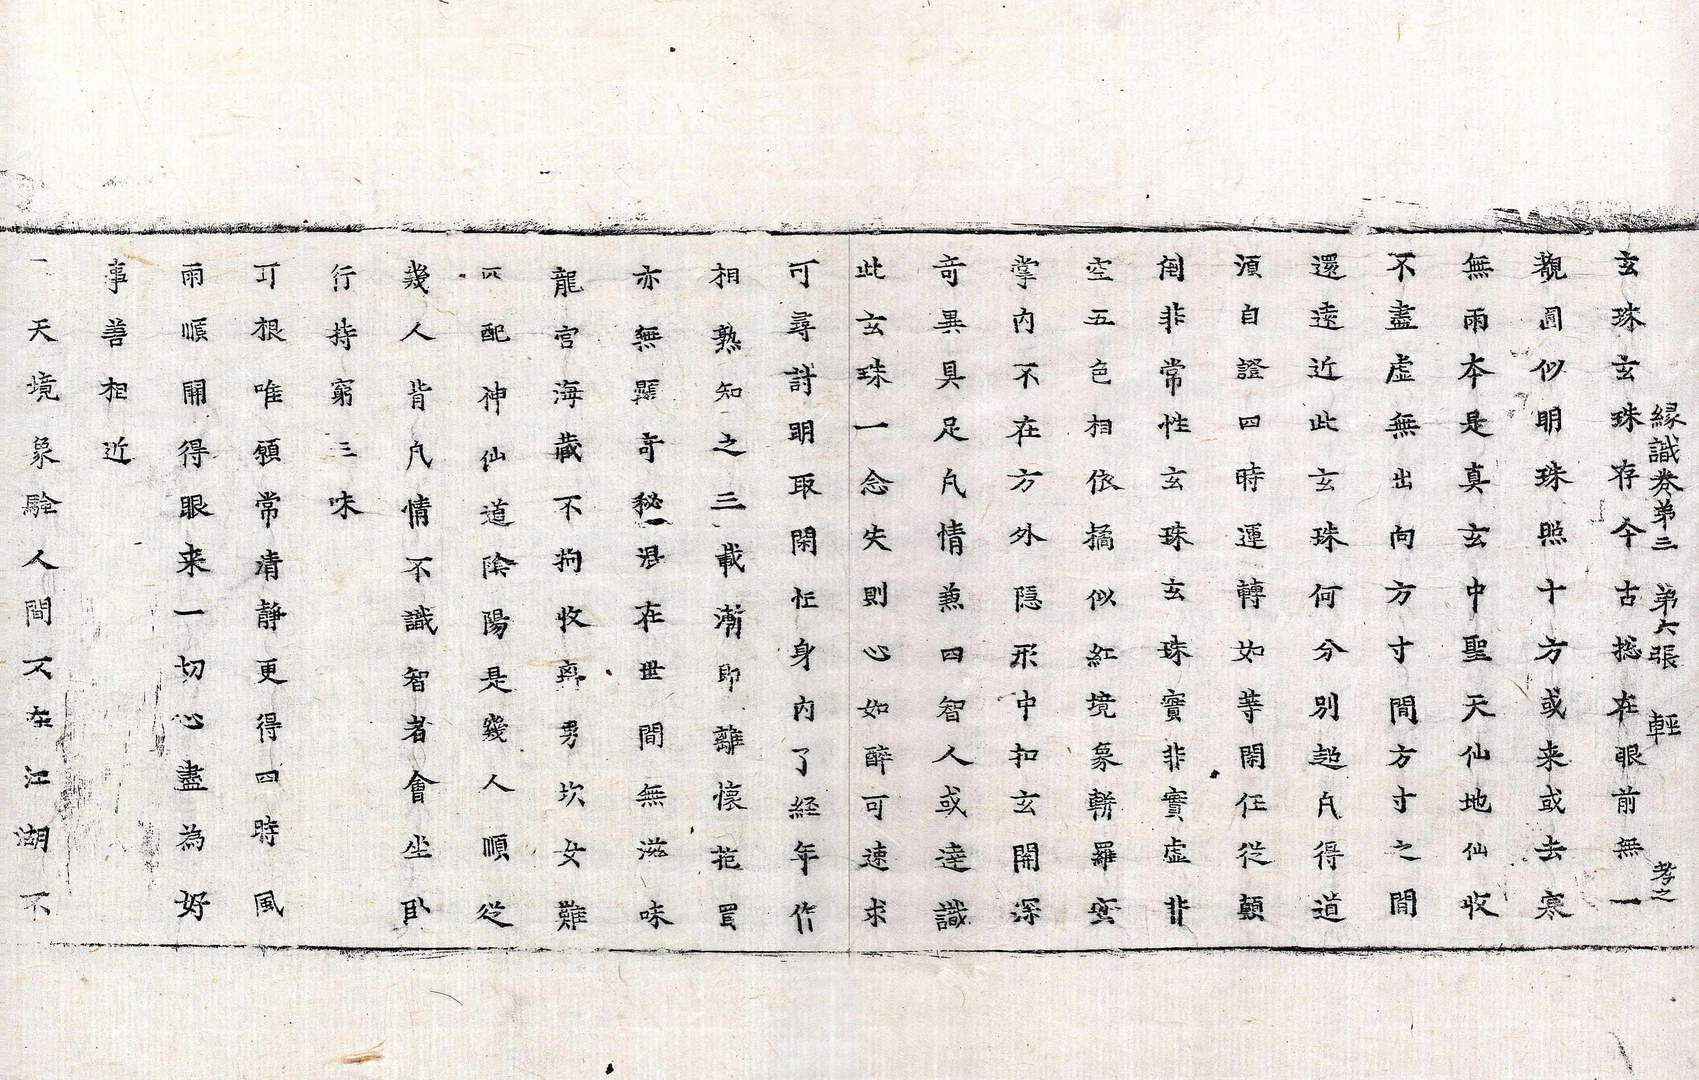 縁識卷第三 第六張 輕 孝之
玄珠玄珠存今古捴在眼前無一
觀圓似明珠照十方或来或去寒
無雨本是真玄中聖天仙地仙收
不盡虚無出向方寸間方寸之間
還遠近此玄珠何分別超凢得道
須自證四時運轉如等閑任從顛
倒非常性玄珠玄珠實非實虚非
空五色相依搐似紅境象軿羅蜜
掌內不在方外隠形中扣玄開深
竒異具足凢情兼四智人或達識
此玄珠一念失則心如醉可速求
可尋討明取閑忙身內了経年作
相熟知之三載漸即離懐菢買
亦無顯竒秘混在世間無滋味
龍宮海蔵不拘收離男坎女難
匹配神仙道陰陽是幾人順從
幾人背凢情不識智者會坐臥
行持窮三味
可根唯願常清静更得四時風
雨順開得眼来一切心盡為好
事善相近
一天境象験人間不在江湖不